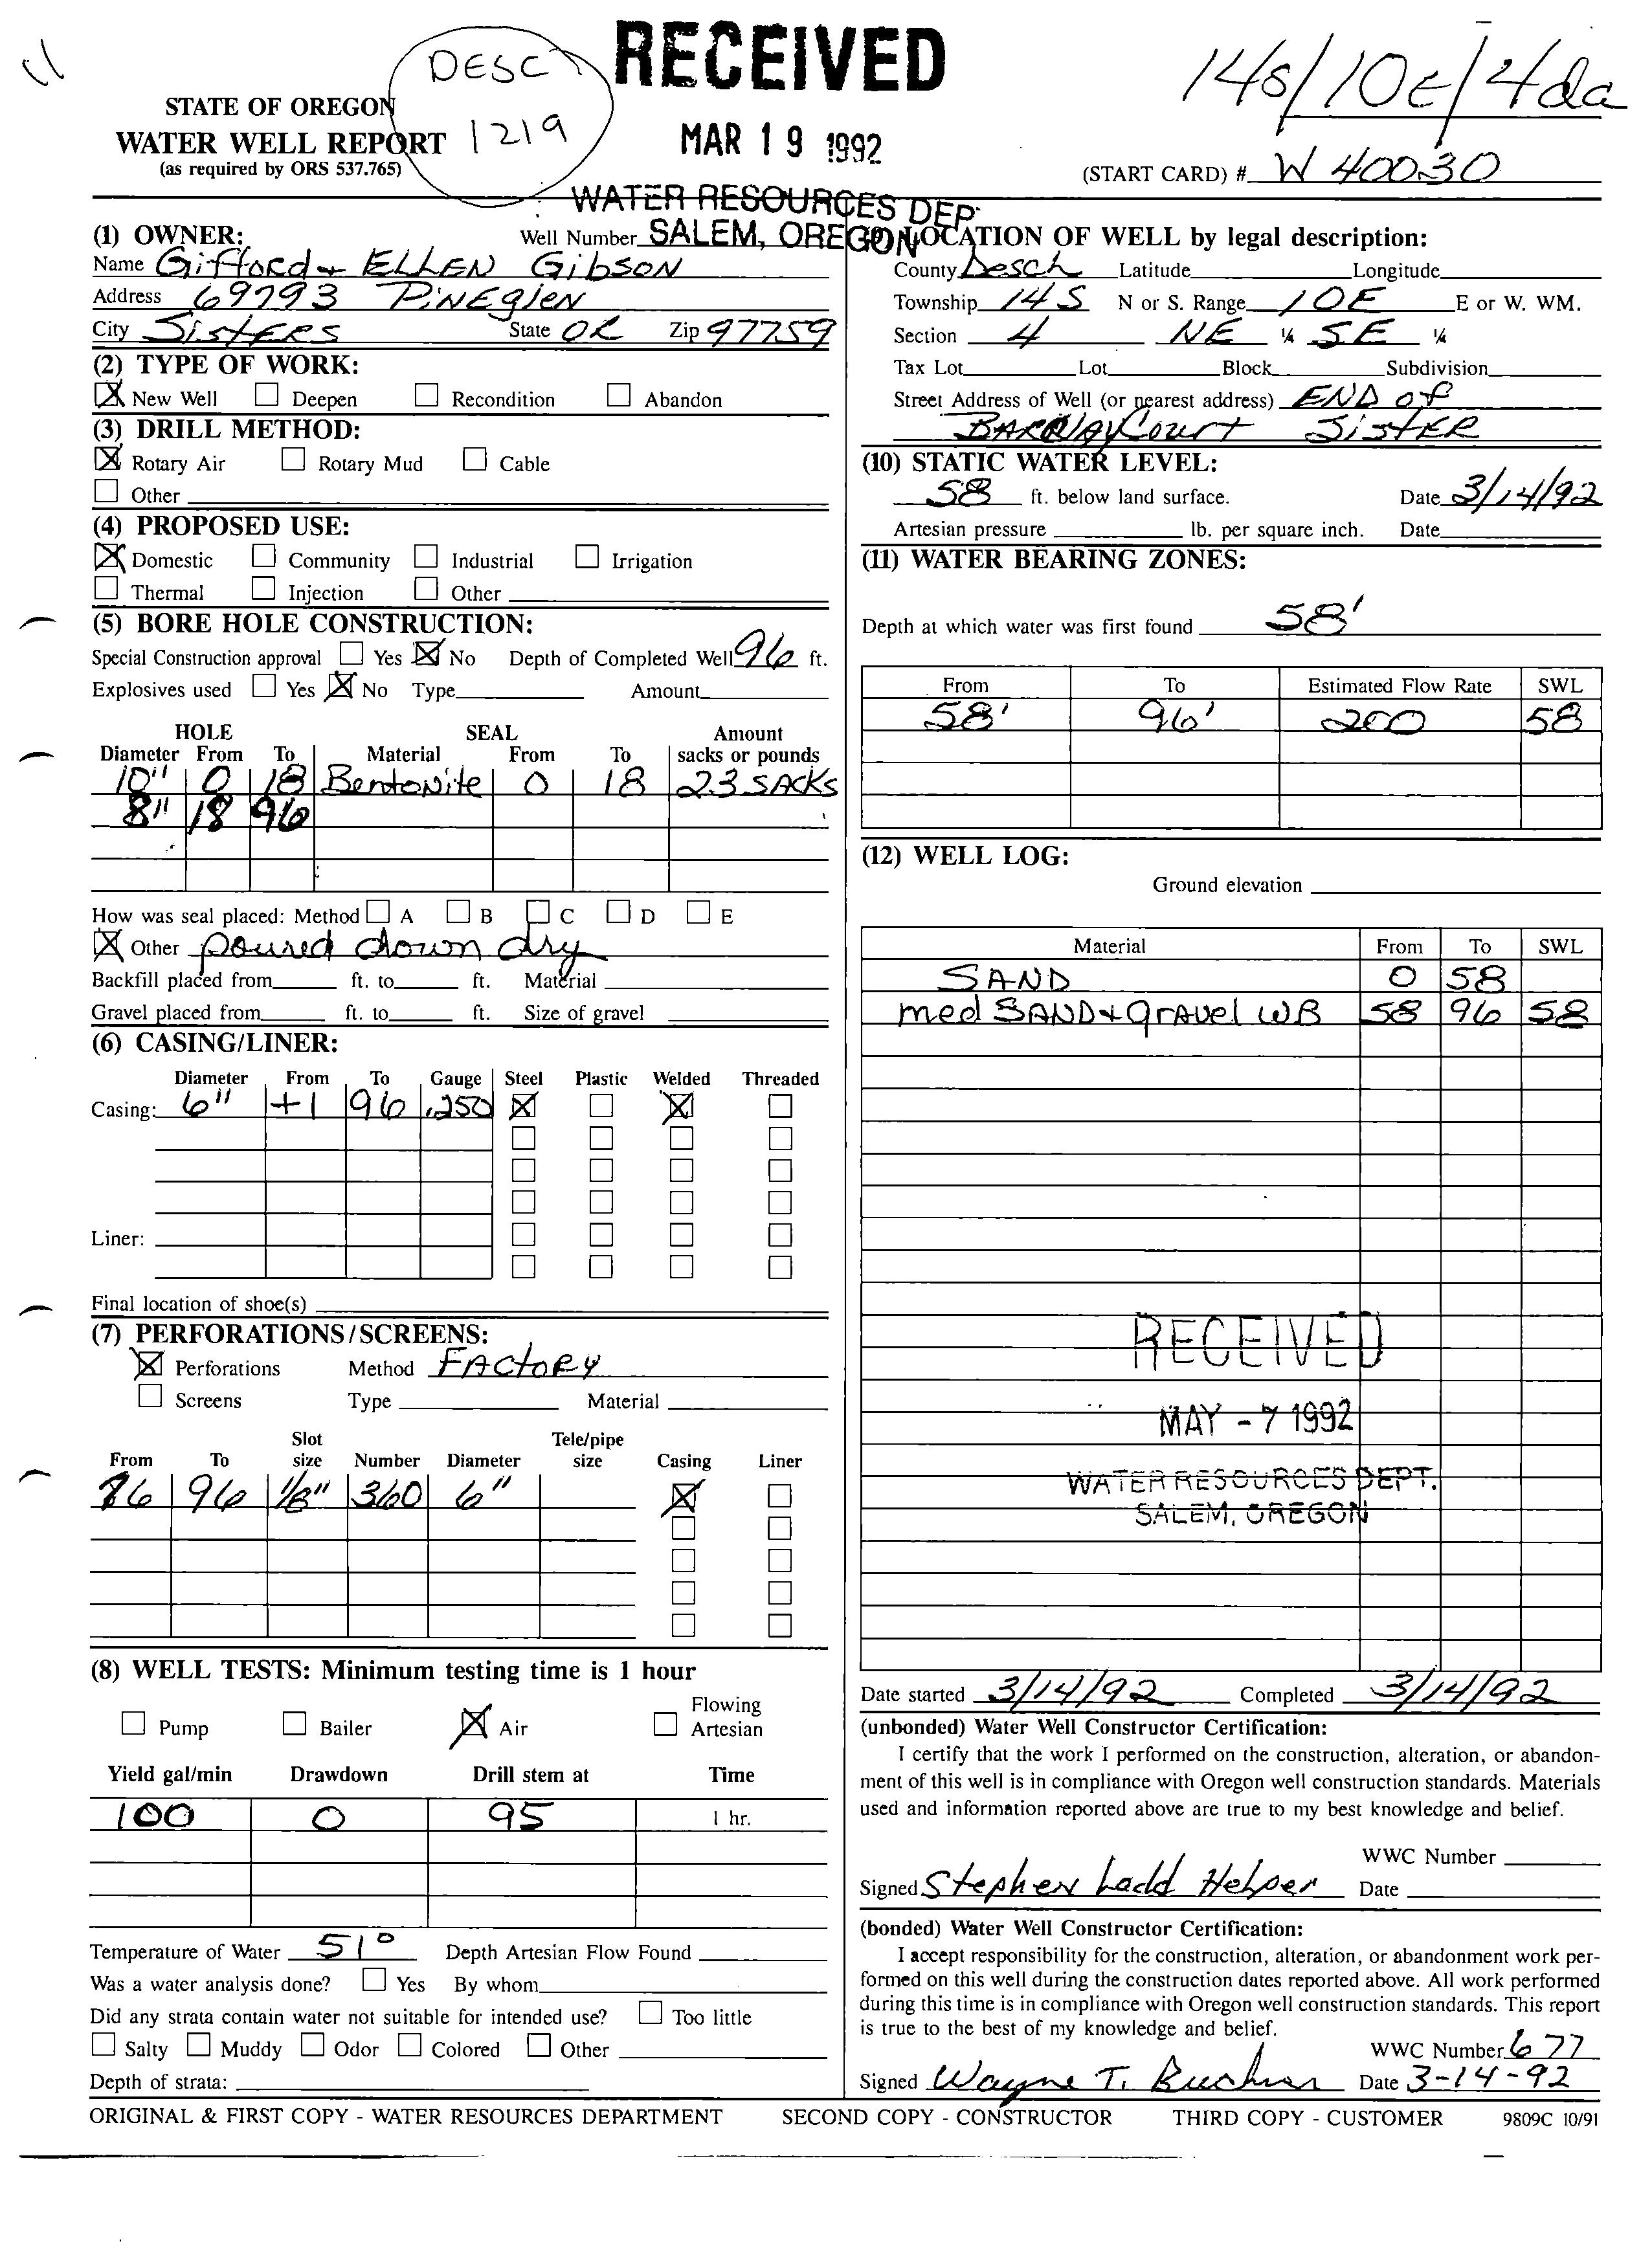 DESC
1219
RECEIVED
MAR 19 1992
WATER RESOURCES DEP
SALEM, OREGON
14S/10E/4da
STATE OF OREGON
WATER WELL REPORT
(as required by ORS 537.765)
(START CARD) # W 40030
(1) OWNER: Well Number
Name Gifford + ELLEN Gibson
Address 69793 PiNEglen
City SistERS State OR Zip 97759
(2) TYPE OF WORK:
New Well Deepen Recondition Abandon
(3) DRILL METHOD:
Rotary Air Rotary Mud Cable
Other
(4) PROPOSED USE:
Domestic Community Industrial Irrigation
Thermal Injection Other
(5) BORE HOLE CONSTRUCTION:
Special Construction approval Yes No Depth of Completed Well 96 ft.
Explosives used Yes No Type Amount
HOLE SEAL Amount
Diameter From To Material From To sacks or pounds
10" 0 18 Bentonite 0 18 23 SACKS
8" 18 96
How was seal placed: Method A B C D E
Other poured down dry
Backfill placed from ft. to ft. Material
Gravel placed from ft. to ft. Size of gravel
(6) CASING/LINER:
Diameter From To Gauge Steel Plastic Welded Threaded
Casing: 6" +1 96 .250
Liner:
Final location of shoe(s)
(7) PERFORATIONS/SCREENS:
Perforations Method FACtoRY
Screens Type Material
From To Slot size Number Diameter Tele/pipe size Casing Liner
96 1/8" 360 6"
(8) WELL TESTS: Minimum testing time is 1 hour
Pump Bailer Air Flowing Artesian
Yield gal/min Drawdown Drill stem at Time
100 0 95 1 hr.
Temperature of Water 51° Depth Artesian Flow Found
Was a water analysis done? Yes By whom
Did any strata contain water not suitable for intended use? Too little
Salty Muddy Odor Colored Other
Depth of strata:
LOCATION OF WELL by legal description:
County Desch Latitude Longitude
Township 14S N or S. Range 10E E or W. WM.
Section 4 NE ¼ SE ¼
Tax Lot Lot Block Subdivision
Street Address of Well (or nearest address) END of
BARClAY Court SistER
(10) STATIC WATER LEVEL:
58 ft. below land surface. Date 3/14/92
Artesian pressure lb. per square inch. Date
(11) WATER BEARING ZONES:
Depth at which water was first found 58'
From To Estimated Flow Rate SWL
58' 96' 200 58
(12) WELL LOG:
Ground elevation
Material From To SWL
SAND 0 58
med SAND + grAvel WB 58 96 58
RECEIVED
MAY -7 1992
WATER RESOURCES DEPT.
SALEM, OREGON
Date started 3/14/92 Completed 3/14/92
(unbonded) Water Well Constructor Certification:
I certify that the work I performed on the construction, alteration, or abandon-
ment of this well is in compliance with Oregon well construction standards. Materials
used and information reported above are true to my best knowledge and belief.
WWC Number
Signed Stephen Ladd Helper Date
(bonded) Water Well Constructor Certification:
I accept responsibility for the construction, alteration, or abandonment work per-
formed on this well during the construction dates reported above. All work performed
during this time is in compliance with Oregon well construction standards. This report
is true to the best of my knowledge and belief.
WWC Number 677
Signed Wayne T. Date 3-14-92
ORIGINAL & FIRST COPY - WATER RESOURCES DEPARTMENT SECOND COPY - CONSTRUCTOR THIRD COPY - CUSTOMER 9809C 10/91